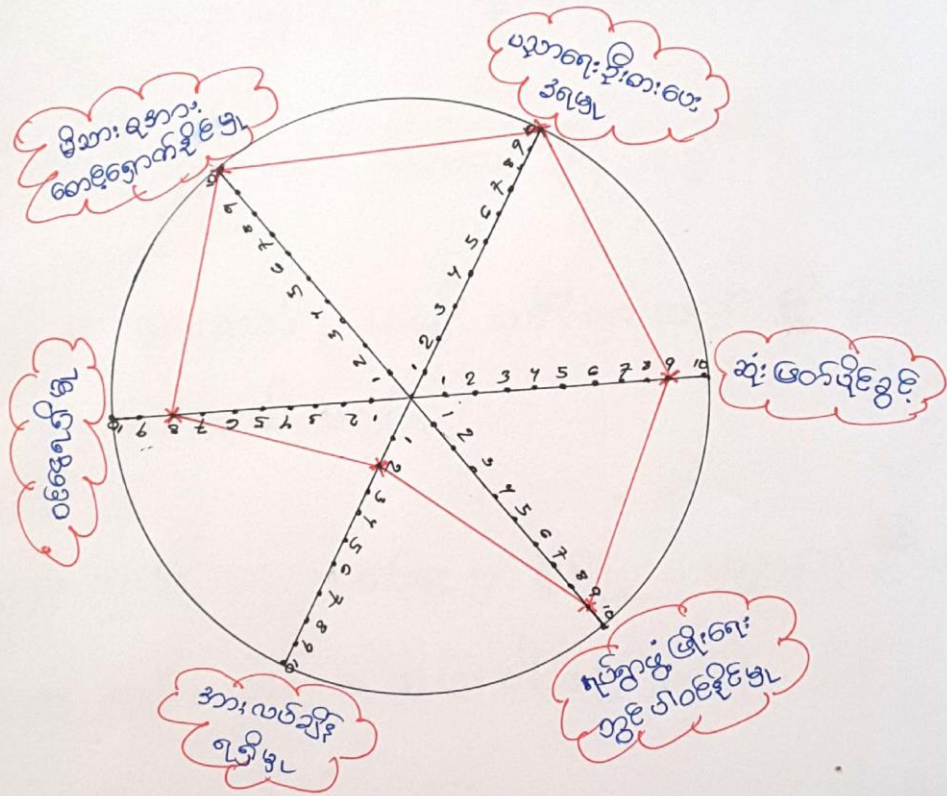 ပညာရေး ဦးစားပေး
ခံရမှု
မိသားစုအား
စောင့်ရှောက်နိုင်မှု
ဆုံးဖြတ်နိုင်ခွင့်
ရပ်ရွာဖွံ့ဖြိုးရေး
တွင် ပါဝင်နိုင်မှု
အားလပ်ချိန်
ရရှိမှု
ဝင်ငွေရရှိမှု
1 2 3 4 5 6 7 8 9 10
1 2 3 4 5 6 7 8 9 10
1 2 3 4 5 6 7 8 9 10
1 2 3 4 5 6 7 8 9 10
1 2 3 4 5 6 7 8 9 10
1 2 3 4 5 6 7 8 9 10